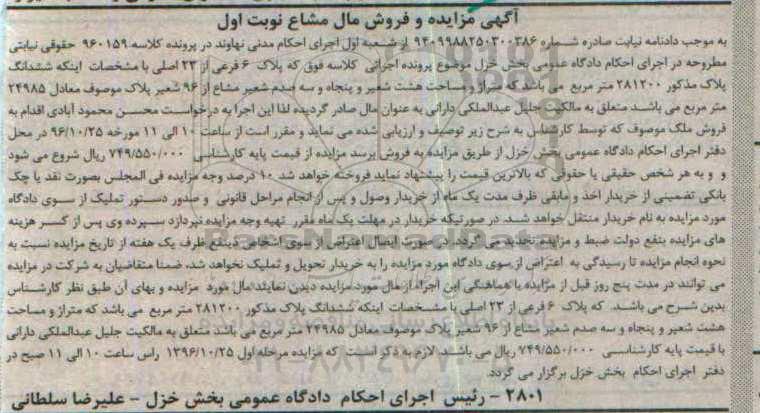 آگهی مزایده و فروش مال مشاع نوبت اول
به موجب دادنامه نیابت صادره شماره ۹۴۰۹۹۸۸۲۵۰۳۰۰۳۸۶ از شعبه اول اجرای احکام مدنی نهاوند در پرونده کلاسه ۹۶۰۱۵۹ حقوقی نیابتی
مطروحه در اجرای احکام دادگاه عمومی بخش خزل موضوع پرونده اجرائی کلاسه فوق که پلاک ۶ فرعی از ۲۳ اصلی با مشخصات اینکه ششدانگ
پلاک مذکور ۲۸۱۲۰۰ متر مربع می باشد که متراژ و مساحت هشت شعیر و پنجاه و سه صدم شعیر مشاع از ۹۶ شعیر پلاک موصوف معادل ۲۴۹۸۵
متر مربع می باشد متعلق به مالکیت جلیل عبدالملکی دارانی به عنوان مال صادر گردیده لذا این اجرا به درخواست محسن محمود آبادی اقدام به
فروش ملک موصوف که توسط کارشناس به شرح زیر توصیف و ارزیابی شده می نماید و مقرر است از ساعت ۱۰ الی ۱۱ مورخه ۹۶/۱۰/۲۵ در محل
دفتر اجرای احکام دادگاه عمومی بخش خزل از طریق مزایده به فروش برسد مزایده از قیمت پایه کارشناسی ۷۴۹/۵۵۰/۰۰۰ ریال شروع می شود
و به هر شخص حقیقی یا حقوقی که بالاترین قیمت را پیشنهاد نماید فروخته خواهد شد ۱۰ درصد وجه مزایده فی المجلس بصورت نقد یا چک
بانکی تضمینی از خریدار اخذ و مابقی ظرف مدت یک ماه از خریدار وصول و پس از انجام مراحل قانونی و صدور دستور تملیک از سوی دادگاه
مورد مزایده به نام خریدار منتقل خواهد شد. در صورتیکه خریدار در مهلت یک ماه مقرر تهیه وجه مزایده نپردازد سپرده وی پس از کسر هزینه
های مزایده بنفع دولت ضبط و مزایده تجدید می گردد. در صورت ایصال اعتراض از سوی اشخاص ذینفع ظرف یک هفته از تاریخ مزایده نسبت به
نحوه انجام مزایده تا رسیدگی به اعتراض از سوی دادگاه مورد مزایده را به خریدار تحویل و تملیک نخواهد شد، ضمنا متقاضیان به شرکت در مزایده
می توانند در مدت پنج روز قبل از مزایده با هماهنگی این اجرا از مال مورد مزایده دیدن نمایند مال مورد مزایده و بهای آن طبق نظر کارشناس
بدین شرح می باشد. که پلاک ۶ فرعی از ۲۳ اصلی با مشخصات اینکه ششدانگ پلاک مذکور ۲۸۱۲۰۰ متر مربع می باشد که متراژ و مساحت
هشت شعیر و پنجاه و سه صدم شعیر مشاع از ۹۶ شعیر پلاک موصوف معادل ۲۴۹۸۵ متر مربع می باشد متعلق به مالکیت جلیل عبدالملکی دارانی
با قیمت پایه کارشناسی ۷۴۹/۵۵۰/۰۰۰ ریال می باشد. لازم به ذکر است که مزایده مرحله اول ۱۳۹۶/۱۰/۲۵ راس ساعت ۱۰ الی ۱۱ صبح در
دفتر اجرای احکام بخش خزل برگزار می گردد.
۲۸۰۱ – رئیس اجرای احکام دادگاه عمومی بخش خزل – علیرضا سلطانی